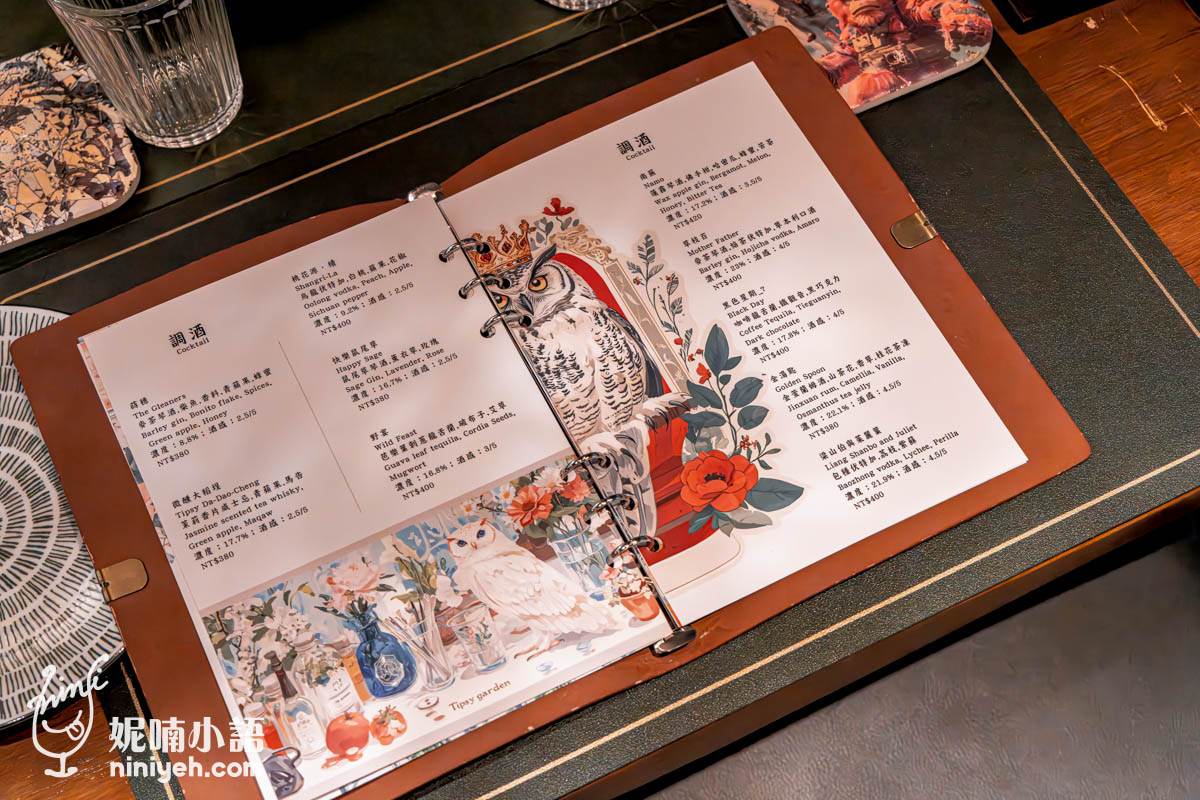 調酒
Cocktail
蒔穗
The Gleaners
麥茶琴酒,柴魚,香料,青蘋果,蜂蜜
Barley gin, Bonito flake, Spices,
Green apple, Honey
濃度：8.8%；酒感：2.5/5
NT$380
微醺大稻埕
Tipsy Da-Dao-Cheng
茉莉香片威士忌,青蘋果,馬告
Jasmine scented tea whisky,
Green apple, Maqaw
濃度：17.7%；酒感：2.5/5
NT$380
桃花源．境
Shangri-La
烏龍伏特加,白桃,蘋果,花椒
Oolong vodka, Peach, Apple,
Sichuan pepper
濃度：9.2%；酒感：2.5/5
NT$400
快樂鼠尾草
Happy Sage
鼠尾草琴酒,薰衣草,玫瑰
Sage Gin, Lavender, Rose
濃度：16.7%；酒感：2.5/5
NT$380
野宴
Wild Feast
芭樂葉剌蔥龍舌蘭,破布子,艾草
Guava leaf tequila, Cordia Seeds,
Mugwort
濃度：16.8%；酒感：3/5
NT$400
Tipsy garden
調酒
Cocktail
南癮
Namo
蓮霧琴酒,佛手柑,哈密瓜,蜂蜜,苦茶
Wax apple gin, Bergamot, Melon,
Honey, Bitter Tea
濃度：17.2%；酒感：3.5/5
NT$420
草枝百
Mother Father
麥茶琴酒,焙茶伏特加,草本利口酒
Barley gin, Hojicha vodka, Amaro
濃度：25%；酒感：4/5
NT$400
黑色星期_?
Black Day
咖啡龍舌蘭,鐵觀音,黑巧克力
Coffee Tequila, Tieguanyin,
Dark chocolate
濃度：17.8%；酒感：4/5
NT$400
金湯匙
Golden Spoon
金萱蘭姆酒,山茶花,香草,桂花茶凍
Jinxuan rum, Camellia, Vanilla,
Osmanthus tea jelly
濃度：22.1%；酒感：4.5/5
NT$380
梁山伯與茱麗葉
Liang Shanbo and Juliet
包種伏特加,荔枝,紫蘇
Baozhong vodka, Lychee, Perilla
濃度：21.9%；酒感：4.5/5
NT$400
妮喃小語
niniyeh.com